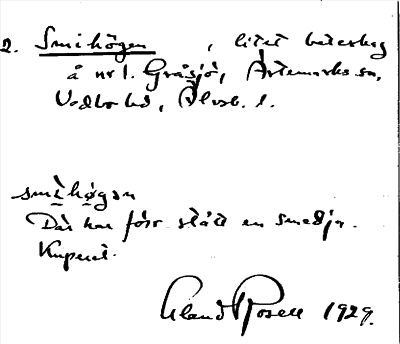 2. Smihögen, litet betesberg
å nr 1. Gråsjö, Ärtemarks sn,
Vedbo hd, Älvsb. l.
smìhø̀gən
Där har förr stått en smedja.
Kuperat.
Erland Rosell 1929.